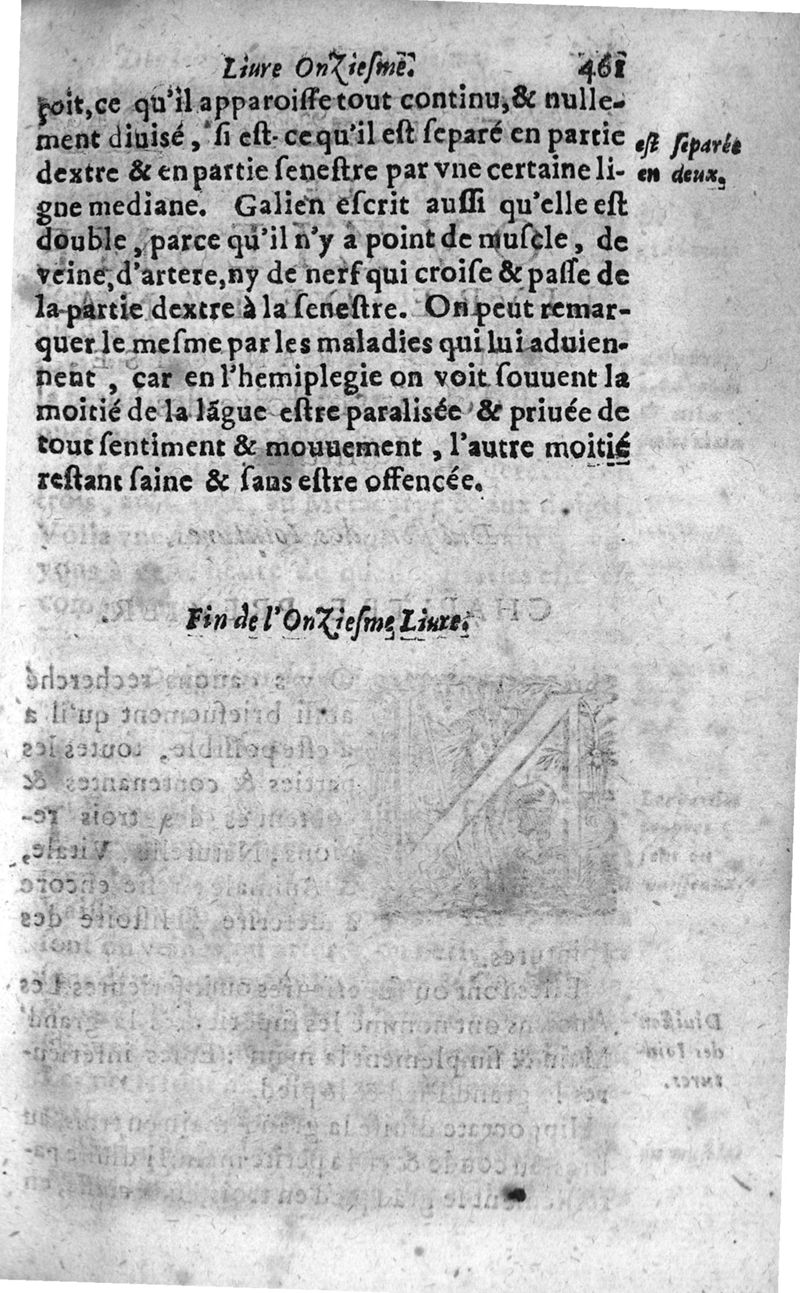 Liure Onziesme. 461
çoit, ce qu'il apparoisse tout continu, & nulle-
ment diuisé, si est-ce qu'il est separé en partie
dextre & en partie senestre par vne certaine li-
gne mediane. Galien escrit aussi qu'elle est
double, parce qu'il n'y a point de muscle, de
veine, d'artere, ny de nerf qui croise & passe de
la partie dextre à la senestre. On peut remar-
quer le mesme par les maladies qui lui aduien-
nent, car en l'hemiplegie on voit souuent la
moitié de la lãgue estre paralisée & priuée de
tout sentiment & mouuement, l'autre moitié
restant saine & sans estre offencée.
est separée
en deux.
Fin de l'Onziesme Liure.